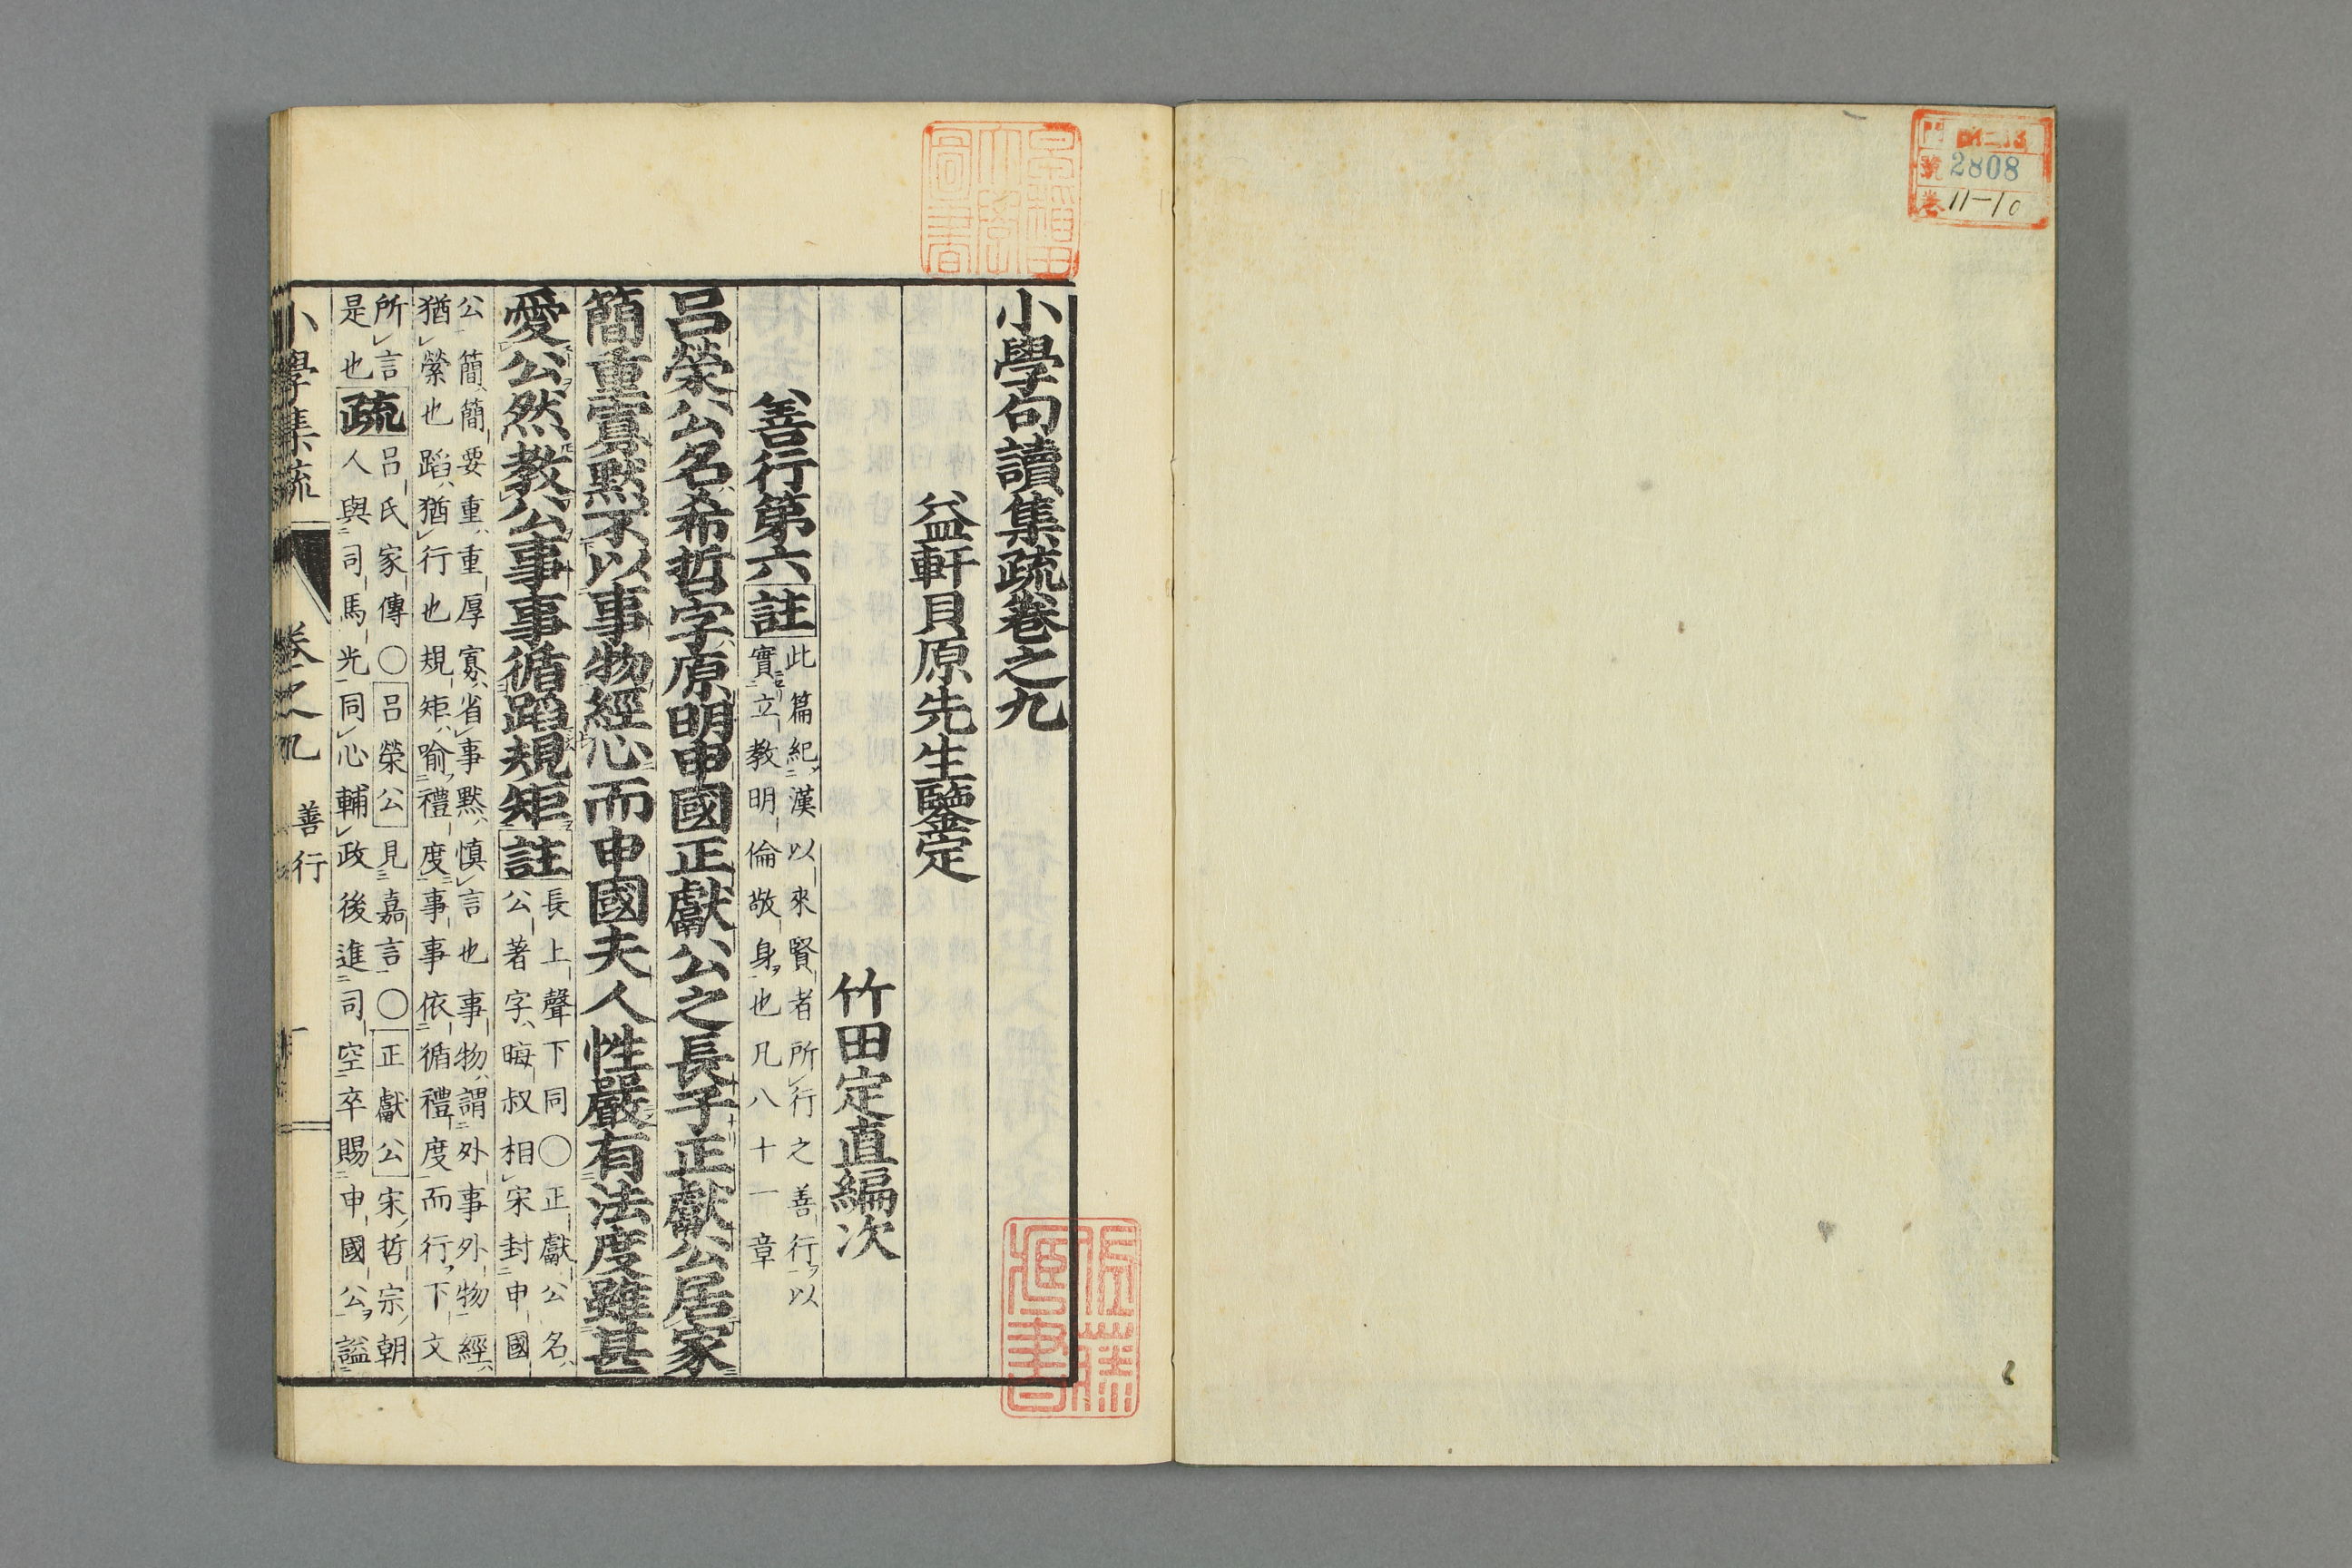 門
號 2808
卷 11-10
早稲田大學圖書
小學句讀集疏卷之九
益軒貝原先生鑒定
竹田定直編次
善行第六 註 此篇紀漢以來賢者所行之善行以
實立教明倫敬身也凡八十一章
呂滎公名希哲字原明申國正獻公之長子正獻公居家
簡重寡默不以事物經心而申國夫人性嚴有法度雖甚
愛公然教公事事循蹈規矩 註 長上聲下同○正獻公名
公著字晦叔相宋封申國
公簡簡要重重厚寡省事默慎言也事物謂外事外物經
猶縈也蹈猶行也規矩喻禮度事事依循禮度而行下文
所言
是也 疏 呂氏家傳○呂榮公見嘉言○正獻公宋哲宗朝
人與司馬光同心輔政後進司空卒賜申國公諡
小學集疏 卷之九 善行 一